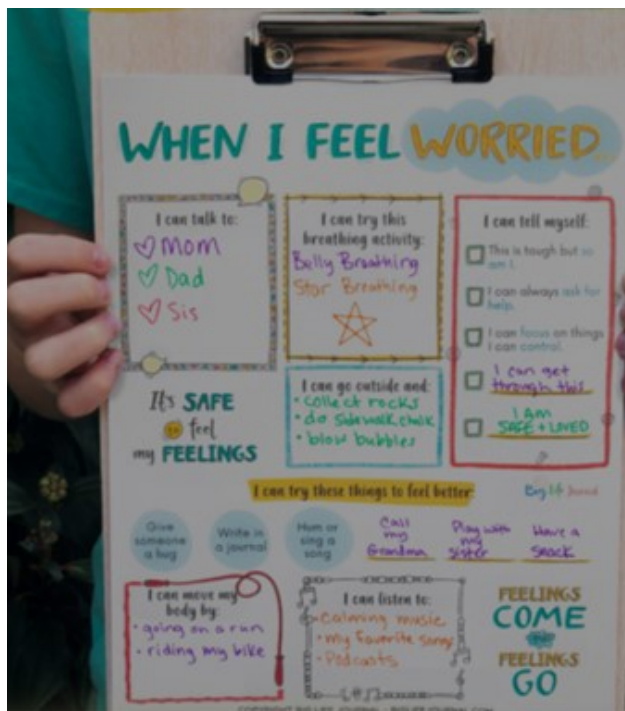 WHEN I FEEL WORRIED...
I can talk to:
Mom
Dad
Sis
I can try this
breathing activity:
Belly Breathing
Star Breathing
I can tell myself:
This is tough but so
am I.
I can always ask for
help.
I can focus on things
I can control.
I can get
through this
I AM
SAFE + LOVED
It's SAFE
to feel
my FEELINGS
I can go outside and:
• collect rocks
• do sidewalk chalk
• blow bubbles
I can try these things to feel better:
Big Life Journal
Give
someone
a hug
Write in
a journal
Hum or
sing a
song
Call
my
Grandma
Play with
my
sister
Have a
snack
I can move my
body by:
• going on a run
• riding my bike
I can listen to:
• calming music
• my favorite song
• Podcasts
FEELINGS
COME
and
FEELINGS
GO
COPYRIGHT BIG LIFE JOURNAL • BIGLIFEJOURNAL.COM